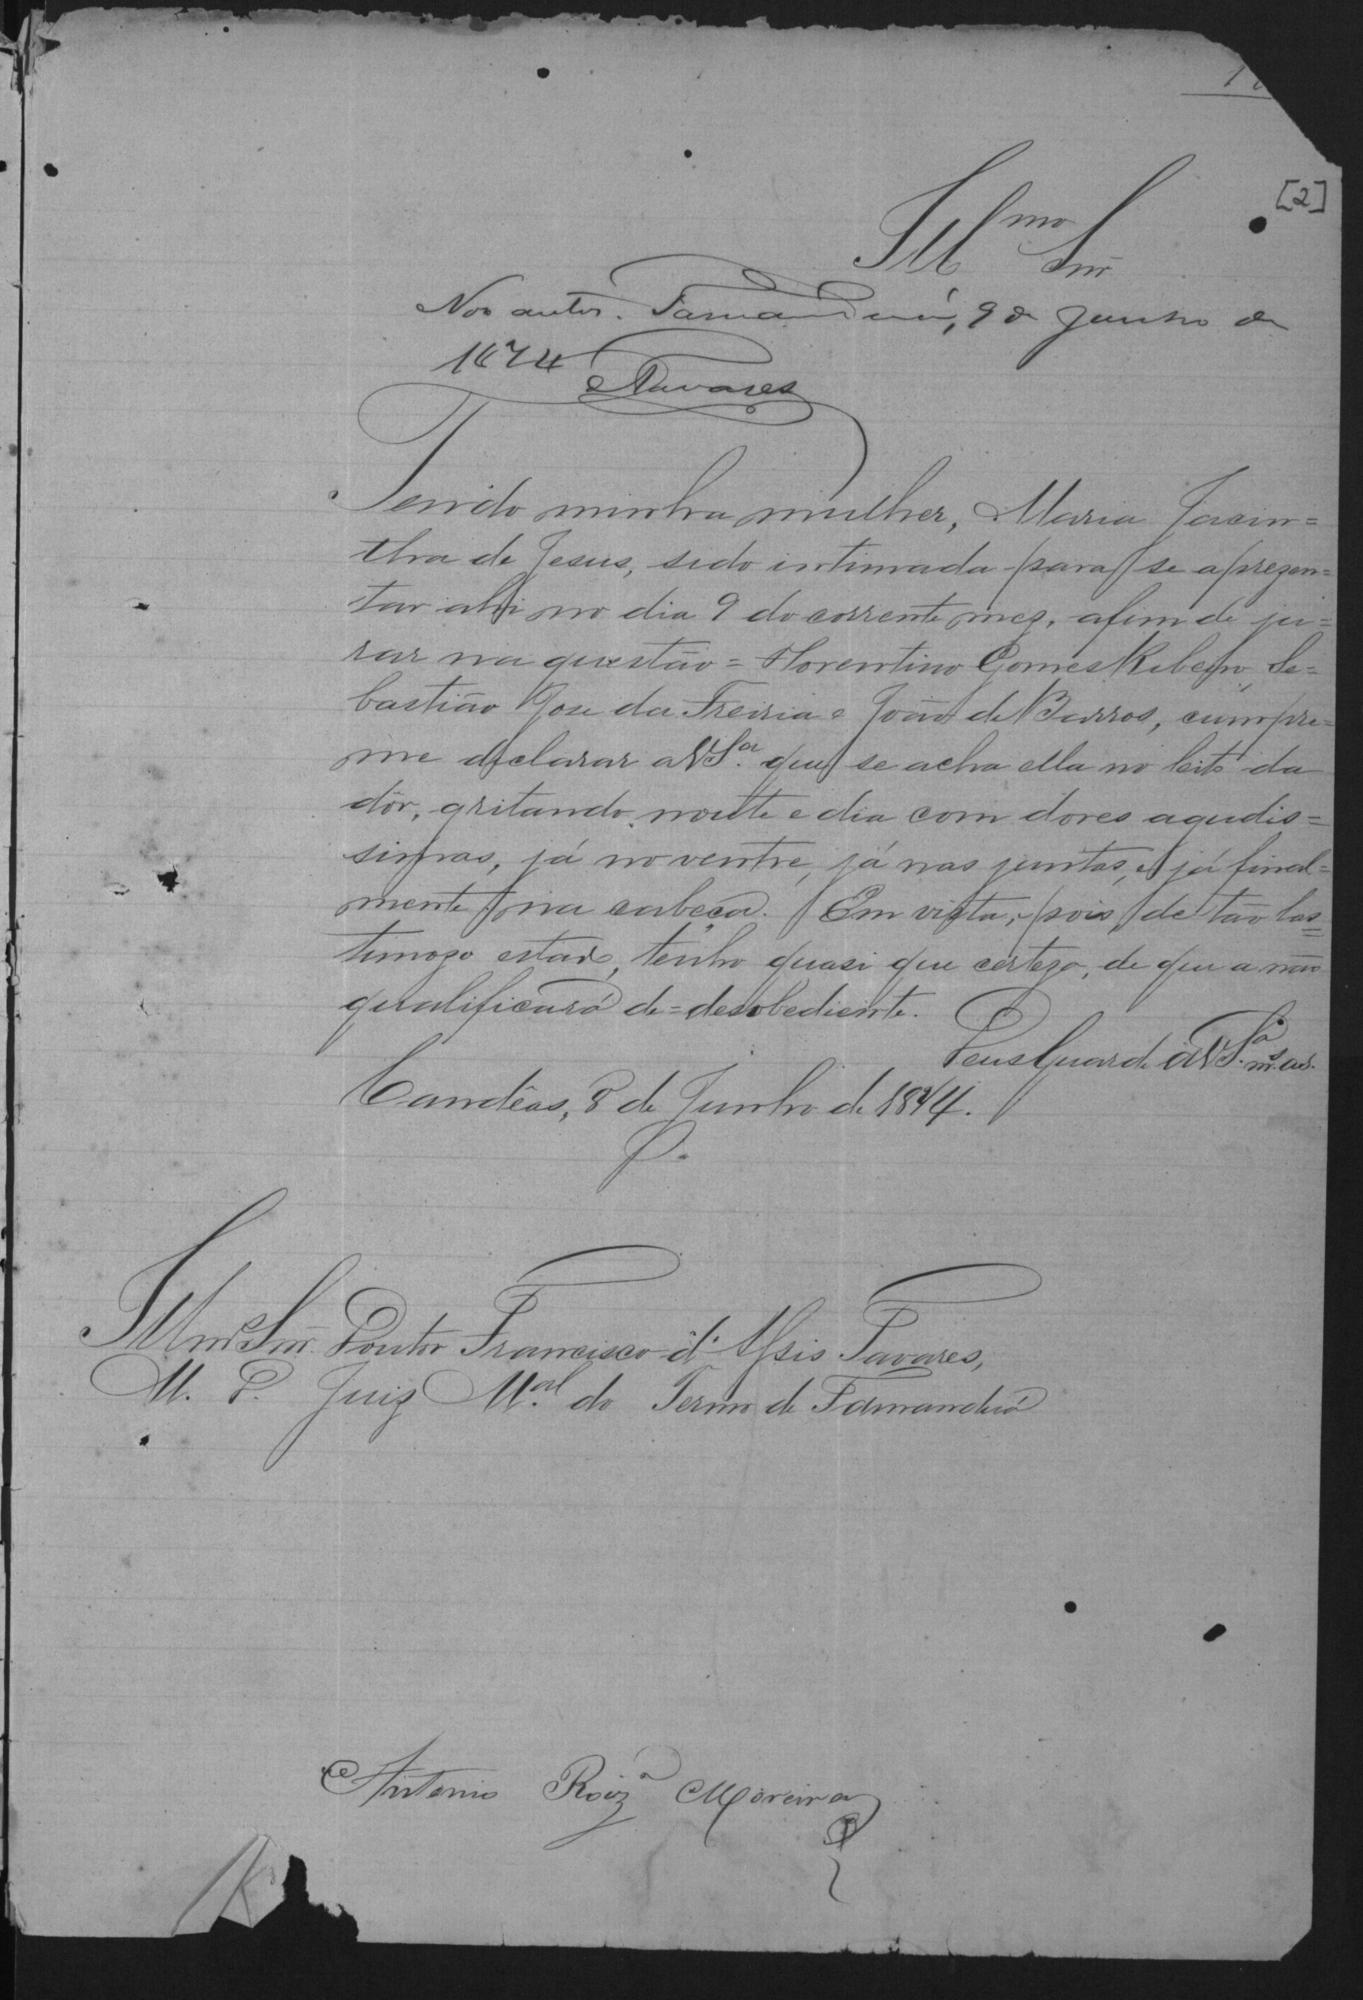 [2]
Illmo Snr
Nos autos. Tamanduá, 9 de Junho de
1874
Tavares
Tendo minha mulher, Maria Jacin=
tha de Jesus, sido intimada para se aprezen=
tar ahi no dia 9 do corrente mez, afim de ju=
rar na questão = Florentino Gomes Ribeiro, Se=
bastião José da Freiria e João de Barros, cumpre=
me declarar a VSa. que se acha ella no leito da
dôr, gritando noute e dia com dores agudis=
simas, já no ventre, já nas juntas, e já final=
mente na cabeça. Em vista, pois, de tão las=
timozo estado, tenho quasi que certeza, de que a não
qualificará de = desobediente.
Deus Guarde a VSa. ms. as.
Candêas, 8 de Junho de 1874.
Illmo Snr. Doutor Francisco d'Assis Tavares,
M. D. Juiz Mal. do Termo de Tamanduá
Antonio Roiz Moreira